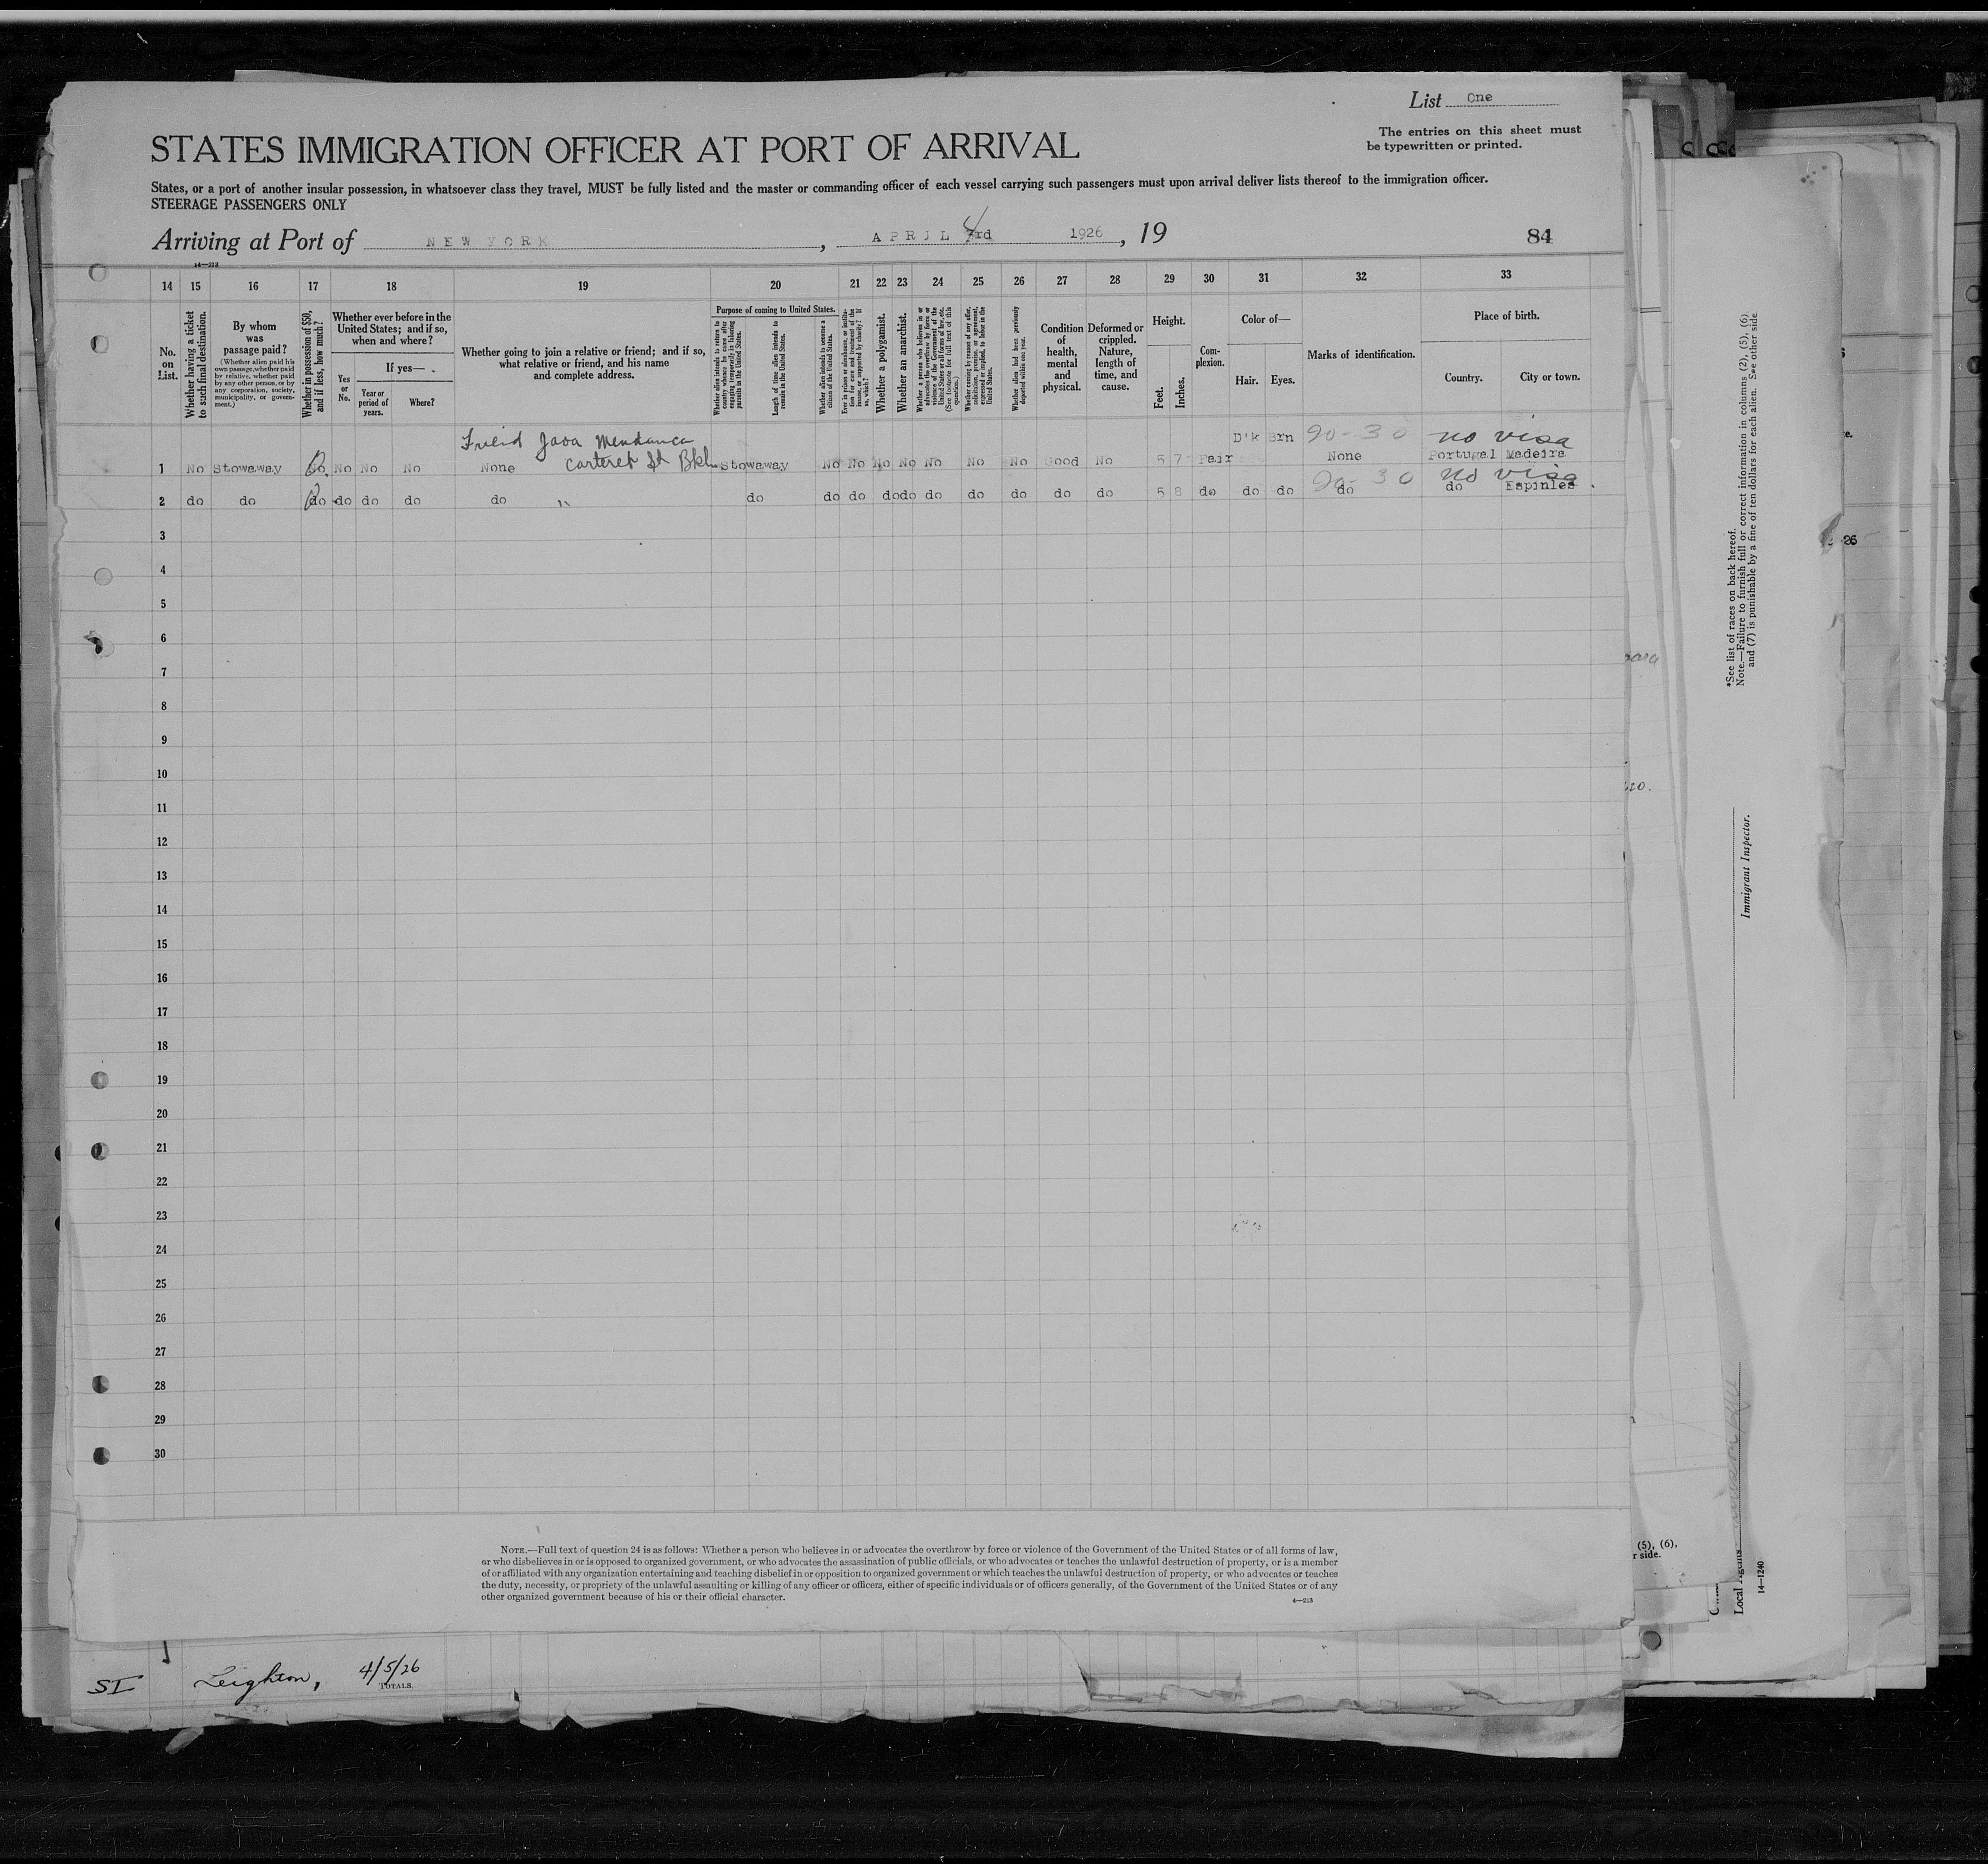 List One
The entries on this sheet must
be typewritten or printed.
STATES IMMIGRATION OFFICER AT PORT OF ARRIVAL
States, or a port of another insular possession, in whatsoever class they travel, MUST be fully listed and the master or commanding officer of each vessel carrying such passengers must upon arrival deliver lists thereof to the immigration officer.
STEERAGE PASSENGERS ONLY
Arriving at Port of NEW YORK, APRIL 4 rd 1926, 19
84
14—213
14 15 16 17 18 19 20 21 22 23 24 25 26 27 28 29 30 31 32 33
No. on List.
Whether having a ticket to such final destination.
By whom was passage paid?
(Whether alien paid his own passage, whether paid by relative, whether paid by any other person, or by any corporation, society, municipality, or government.)
Whether in possession of $50, and if less, how much?
Whether ever before in the United States; and if so, when and where?
Yes or No.
If yes—
Year or period of years.
Where?
Whether going to join a relative or friend; and if so, what relative or friend, and his name and complete address.
Purpose of coming to United States.
Whether alien intends to return to country whence he came after engaging temporarily in laboring pursuits in the United States.
Length of time alien intends to remain in the United States.
Whether alien intends to become a citizen of the United States.
Ever in prison or almshouse, or institution for care and treatment of the insane, or supported by charity? If so, which?
Whether a polygamist.
Whether an anarchist.
Whether a person who believes in or advocates the overthrow by force or violence of the Government of the United States or all forms of law, etc. (See footnote for full text of this question.)
Whether coming by reason of any offer, solicitation, promise, or agreement, expressed or implied, to labor in the United States.
Whether alien had been previously deported within one year.
Condition of health, mental and physical.
Deformed or crippled. Nature, length of time, and cause.
Height.
Feet. Inches.
Complexion.
Color of—
Hair. Eyes.
Marks of identification.
Place of birth.
Country. City or town.
Freid Joao Mendanca D'k Brn 20-30 no visa
1 No Stowaway No No No None Carteret St Bkl Stowaway No No No No No No No Good No 5 7 Fair None Portugal Madeira
20-30 no visa
2 do do do do do do do " do do do do do do do do do do 5 8 do do do do do Espinles
3
4
5
6
7
8
9
10
11
12
13
14
15
16
17
18
19
20
21
22
23
24
25
26
27
28
29
30
NOTE.—Full text of question 24 is as follows: Whether a person who believes in or advocates the overthrow by force or violence of the Government of the United States or of all forms of law,
or who disbelieves in or is opposed to organized government, or who advocates the assassination of public officials, or who advocates or teaches the unlawful destruction of property, or is a member
of or affiliated with any organization entertaining and teaching disbelief in or opposition to organized government or which teaches the unlawful destruction of property, or who advocates or teaches
the duty, necessity, or propriety of the unlawful assaulting or killing of any officer or officers, either of specific individuals or of officers generally, of the Government of the United States or of any
other organized government because of his or their official character.
4—213
SI Leighton, 4/5/26
TOTALS.
*See list of races on back hereof.
Note.—Failure to furnish full or correct information in columns (2), (5), (6)
and (7) is punishable by a fine of ten dollars for each alien. See other side
Immigrant Inspector.
26
(5), (6),
r side.
Local Agents
14—1240